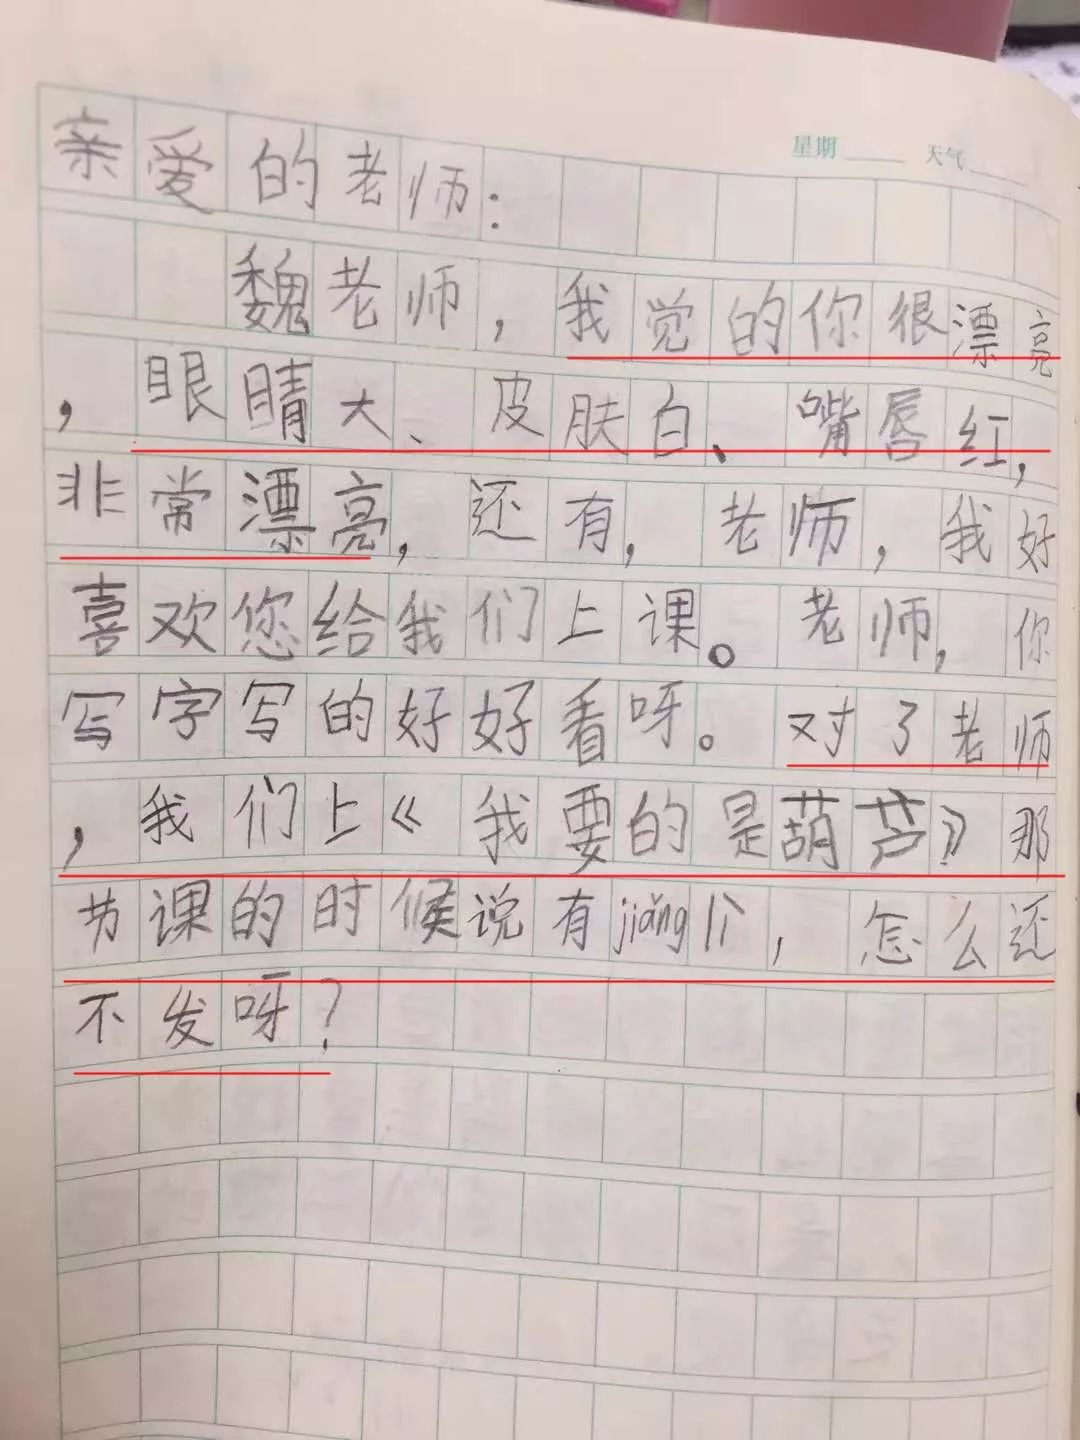 星期____ 天气____
亲爱的老师：
魏老师，我觉的你很漂亮
，眼睛大、皮肤白、嘴唇红，
非常漂亮，还有，老师，我好
喜欢您给我们上课。老师，你
写字写的好好看呀。对了老师
，我们上《我要的是葫芦》那
节课的时候说有jiǎng个，怎么还
不发呀？